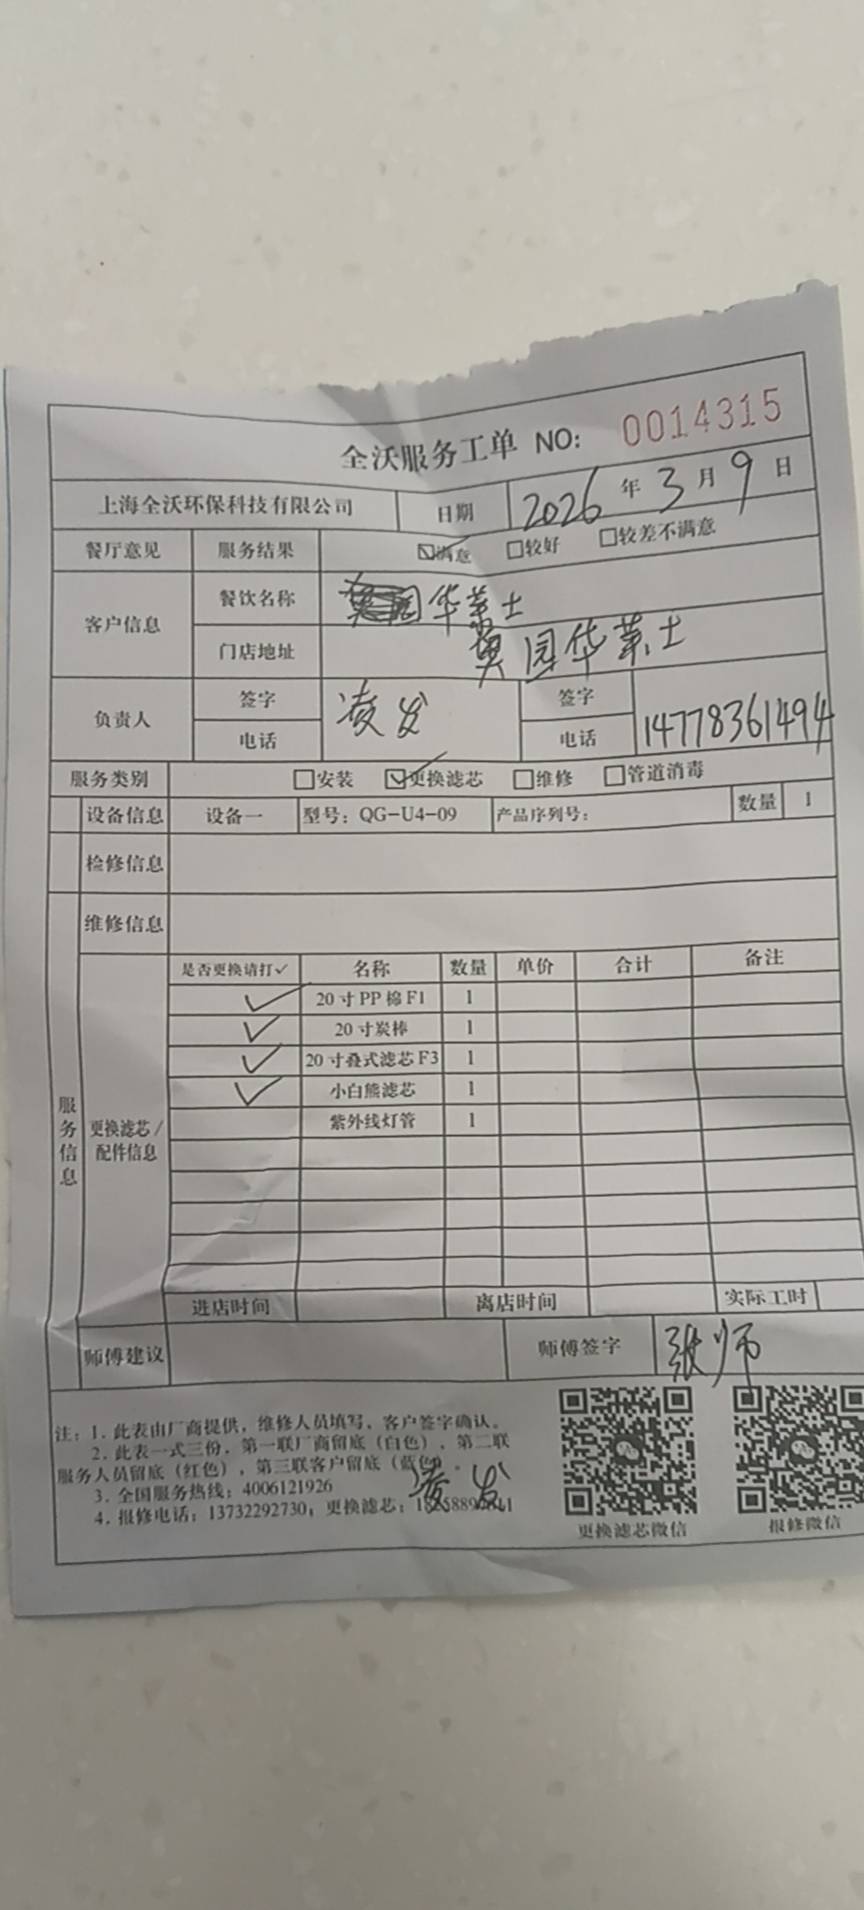 全沃服务工单 NO: 0014315
上海全沃环保科技有限公司 日期 2026 年 3 月 9 日
餐厅意见 服务结果 满意 较好 较差不满意
客户信息 餐饮名称 华莱士
门店地址 园华莱士
负责人 签字 凌发 签字
电话 电话 14778361494
服务类别 安装 更换滤芯 维修 管道消毒
设备信息 设备一 型号：QG-U4-09 产品序列号： 数量 1
检修信息
维修信息
服务信息
更换滤芯/配件信息
是否更换请打✓ 名称 数量 单价 合计 备注
✓ 20寸PP棉F1 1
✓ 20寸炭棒 1
✓ 20寸叠式滤芯F3 1
✓ 小白熊滤芯 1
紫外线灯管 1
进店时间 离店时间 实际工时
师傅建议 师傅签字 张师
注：1. 此表由厂商提供，维修人员填写，客户签字确认。
2. 此表一式三份，第一联厂商留底（白色），第二联
服务人员留底（红色），第三联客户留底（蓝色）。
3. 全国服务热线：4006121926
凌发
4. 报修电话：13732292730；更换滤芯：
更换滤芯微信 报修微信